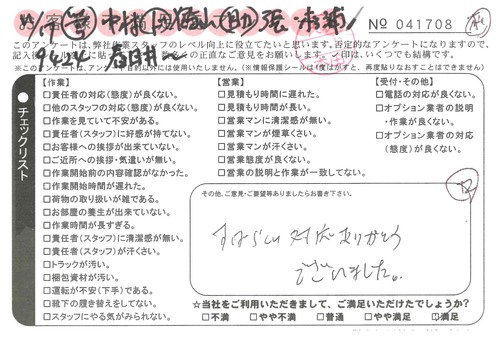 No 041708
このアンケートは、弊社作業スタッフのレベル向上に役立てたいと思います。否定的なアンケートになりますので、
の率直なご意見をお願いします。一印は、いくつでも結構です。
チェックリスト
【作業】
□責任者の対応(態度)が良くない。
□他のスタッフの対応(態度)が良くない。
□作業を見ていて不安がある。
□責任者(スタッフ)に好感が持てない。
□お客様への挨拶が出来ていない。
□ご近所への挨拶・気遣いが無い。
□作業開始前の内容確認がなかった。
□作業開始時間が遅れた。
□荷物の取り扱いが雑である。
□お部屋の養生が出来ていない。
□作業時間が長すぎる。
□責任者(スタッフ)に清潔感が無い。
□責任者(スタッフ)が汗くさい。
□トラックが汚い。
□梱包資材が汚い。
□運転が不安(下手)である。
□靴下の履き替えをしてない。
□スタッフにやる気がみられない。
【営業】
□見積もり時間に遅れた。
□見積もり時間が長い。
□営業マンに清潔感が無い。
□営業マンが煙草くさい。
□営業マンが汗くさい。
□営業態度が良くない。
□営業の説明と作業が一致してない。
【受付・その他】
□電話の対応が良くない。
□オプション業者の説明
・作業が良くない。
□オプション業者の対応
(態度)が良くない。
その他、ご意見・ご要望等ありましたらお書き下さい。
すばらしい対応ありがとう
ございました。
☆当社をご利用いただきまして、ご満足いただけたでしょうか?
□不満 □やや不満 □普通 □やや満足 □満足